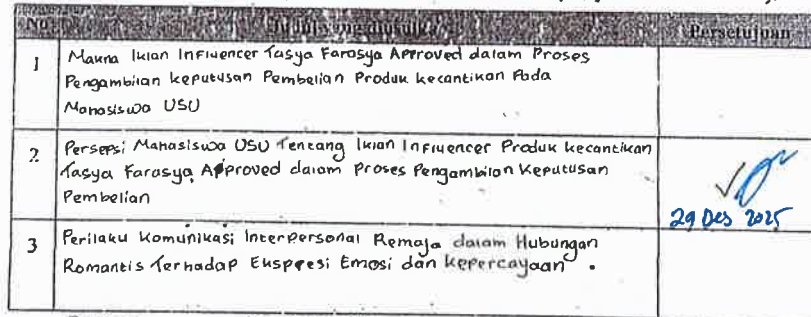 No Judul yang diusulkan Persetujuan
1 Makna Iklan Influencer Tasya Farasya Approved dalam Proses
Pengambilan keputusan Pembelian Produk kecantikan Pada
Mahasiswa USU
2. Persepsi Mahasiswa USU Tentang Iklan Influencer Produk kecantikan
Tasya Farasya Approved dalam Proses Pengambilan Keputusan
Pembelian
29 Des 2025
3 Perilaku Komunikasi Interpersonal Remaja dalam Hubungan
Romantis Terhadap Ekspresi Emosi dan kepercayaan .